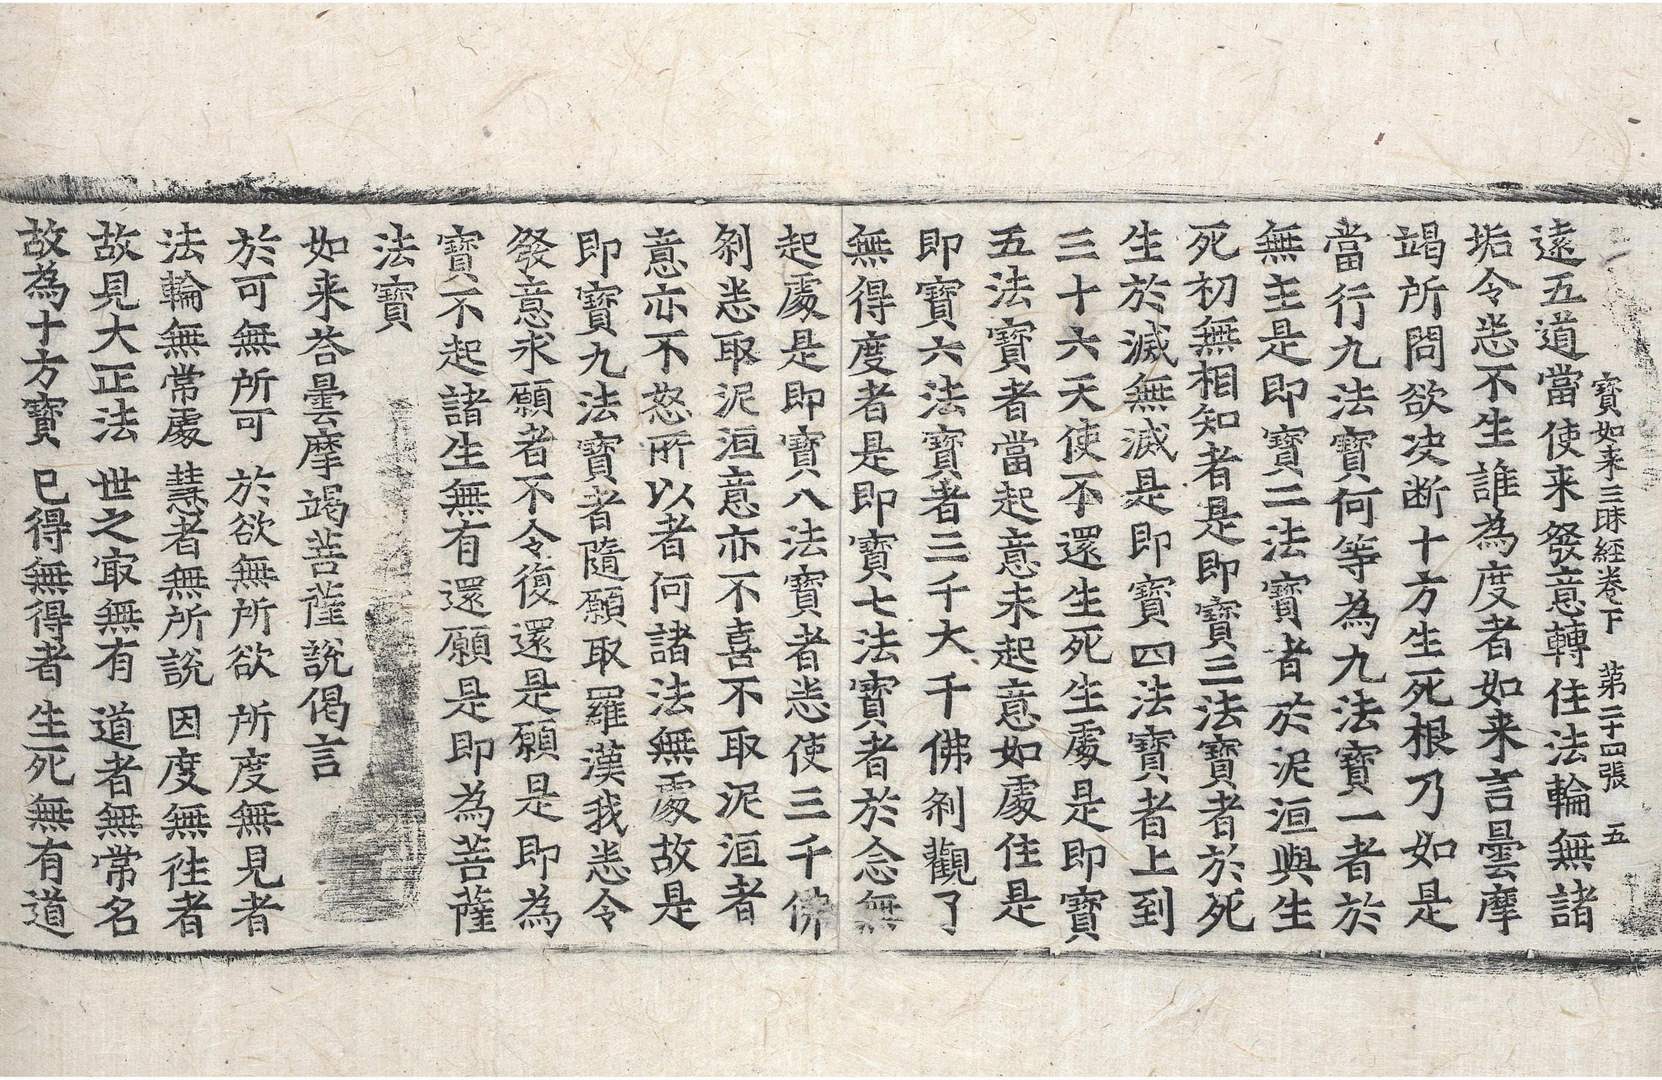 寶如来三昧經卷下　第二十四張　五
遠五道當使来發意轉住法輪無諸
垢令悉不生誰為度者如来言曇摩
竭所問欲决断十方生死根乃如是
當行九法寶何等為九法寶一者於
無主是即寶二法寶者於泥洹與生
死初無相知者是即寶三法寶者於死
生於滅無滅是即寶四法寶者上到
三十六天使不還生死生處是即寶
五法寶者當起意未起意如處住是
即寶六法寶者三千大千佛刹觀了
無得度者是即寶七法寶者於念無
起處是即寶八法寶者悉使三千佛
刹悉取泥洹意亦不喜不取泥洹者
意亦不怒所以者何諸法無處故是
即寶九法寶者隨願取羅漢我悉令
發意求願者不令復還是願是即為
寶不起諸生無有還願是即為菩薩
法寶
如来荅曇摩竭菩薩說偈言
於可無所可　於欲無所欲　所度無見者
法輪無常處　慧者無所說　因度無徃者
故見大正法　世之㝡無有　道者無常名
故為十方寶　已得無得者　生死無有道